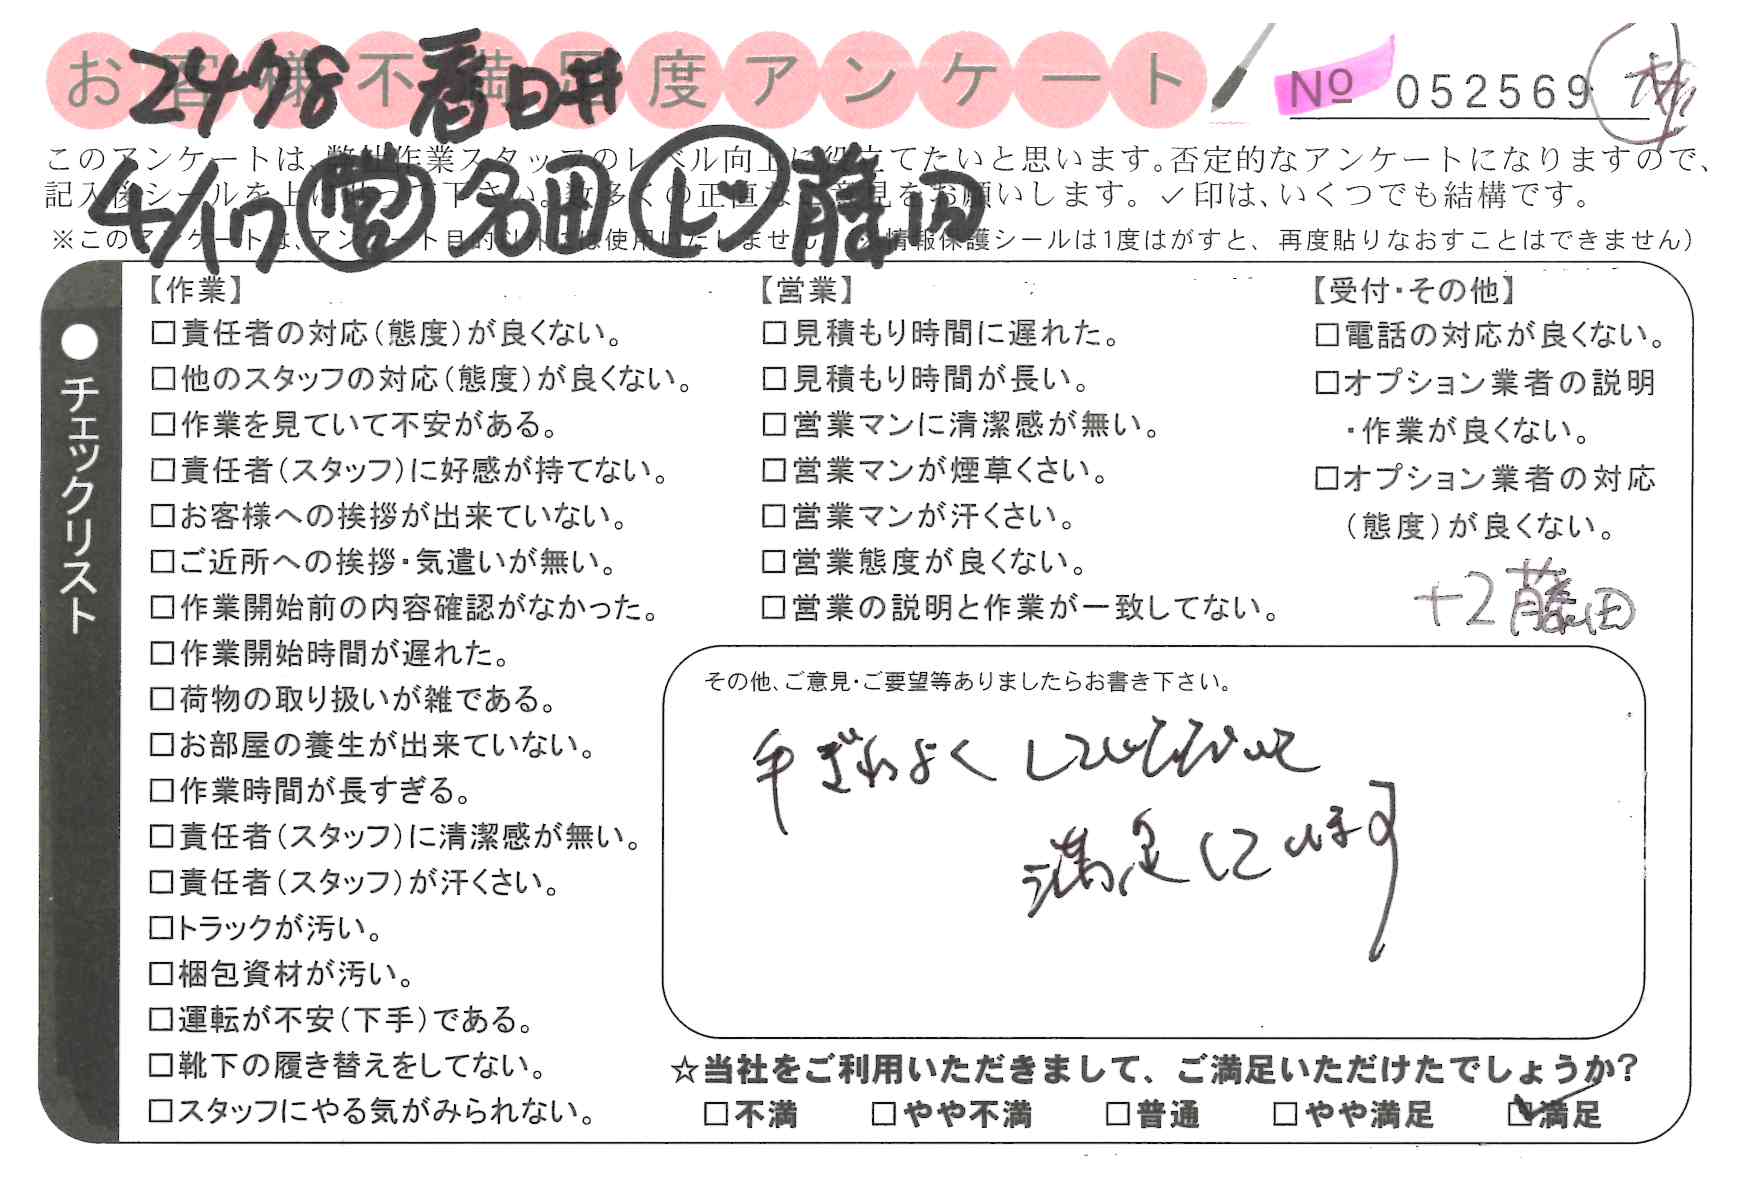 お客様不満足度アンケート
2478 春日井
No 052569
このアンケートは、弊社作業スタッフのレベル向上に役立てたいと思います。否定的なアンケートになりますので、
記入後シールを上に貼って下さい。数多くの正直なご意見をお願いします。✓印は、いくつでも結構です。
4/17 営 名田 レツ 藤田
※このアンケートは、アンケート目的以外には使用いたしません。(※情報保護シールは1度はがすと、再度貼りなおすことはできません)
●チェックリスト
【作業】
□責任者の対応(態度)が良くない。
□他のスタッフの対応(態度)が良くない。
□作業を見ていて不安がある。
□責任者(スタッフ)に好感が持てない。
□お客様への挨拶が出来ていない。
□ご近所への挨拶・気遣いが無い。
□作業開始前の内容確認がなかった。
□作業開始時間が遅れた。
□荷物の取り扱いが雑である。
□お部屋の養生が出来ていない。
□作業時間が長すぎる。
□責任者(スタッフ)に清潔感が無い。
□責任者(スタッフ)が汗くさい。
□トラックが汚い。
□梱包資材が汚い。
□運転が不安(下手)である。
□靴下の履き替えをしてない。
□スタッフにやる気がみられない。
【営業】
□見積もり時間に遅れた。
□見積もり時間が長い。
□営業マンに清潔感が無い。
□営業マンが煙草くさい。
□営業マンが汗くさい。
□営業態度が良くない。
□営業の説明と作業が一致してない。
【受付・その他】
□電話の対応が良くない。
□オプション業者の説明
・作業が良くない。
□オプション業者の対応
(態度)が良くない。
+2藤田
その他、ご意見・ご要望等ありましたらお書き下さい。
手ぎわよくしていただいて
満足しています
☆当社をご利用いただきまして、ご満足いただけたでしょうか?
□不満 □やや不満 □普通 □やや満足 ☑満足